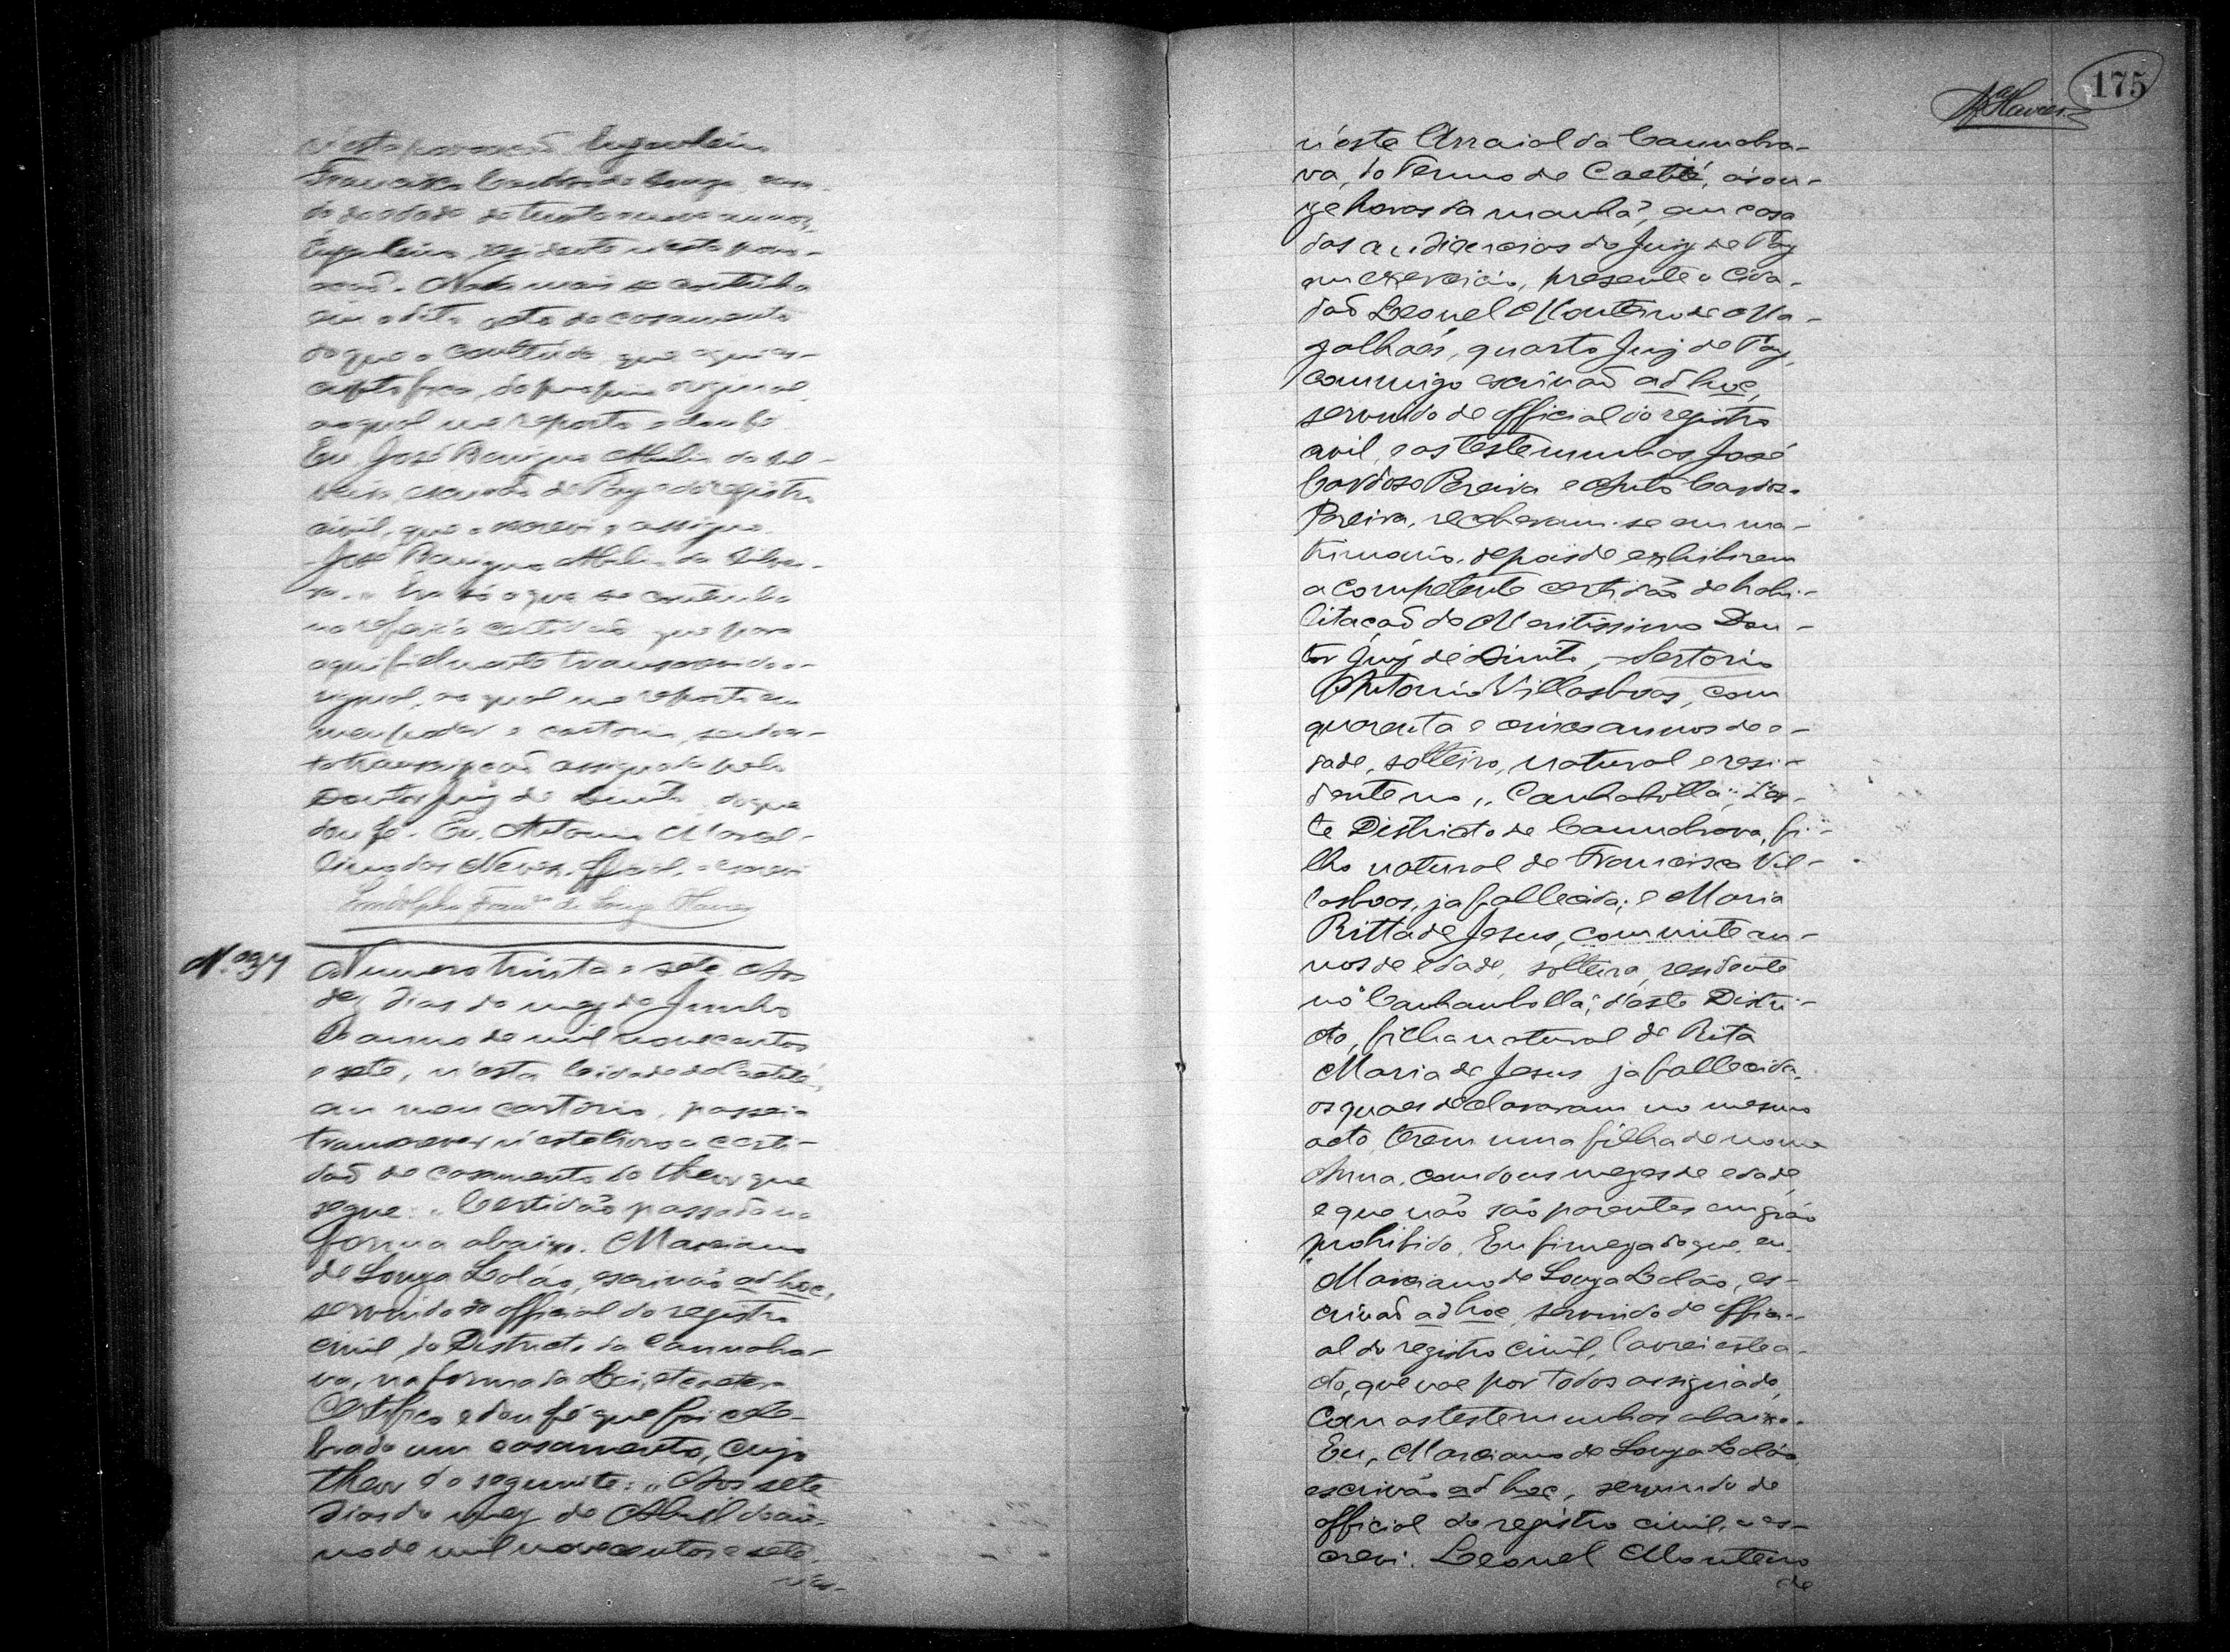 n'esta povoação
Francisco Cardoso de Souza
de idade de trinta e nove annos,
residente n'esta povo-
ação. Nada mais se continha
em o dito acto de casamento
do que o contheúdo, que aqui es-
do proprio original,
ao qual me reporto e dou fé
Eu José Benigno
escrivão de Paz e do registro
civil, que o escrevi e assigno.
José Benigno
Era só o que se continha
na referida certidão que para
aqui fielmente transcrevi do o-
riginal, ao qual me reporto em
meu poder e cartorio, sendo es-
ta transcripção assignada pelo
Doutor Juiz de Direito, do que
dou fé. Eu, Antonio Marcel-
lino das Neves, official, o escrevi
N.º 37
Numero trinta e sete. Aos
dez dias do mez de Junho
do anno de mil novecentos
e sete, n'esta Cidade de Caetité,
em meu cartorio, passei a
transcrever n'este livro a certi-
daõ de casamento do theor que
segue: "Certidão passada na
forma abaixo. Marciano
de Souza Ledão, escrivão ad hoc,
servindo de official do registro
civil do Districto da Cannabra-
va, na forma da Lei, etc. etc.
Certifico e dou fé que foi cele-
brado um casamento, cujo
theor é o seguinte: "Aos sete
dias do mez de Abril do an-
no de mil novecentos e sete,
n'es-
175
n'este Arraial da Cannabra-
va, do Termo de Caetité, ás on-
ze horas da manhã, em casa
das audiencias do Juiz de Paz
em exercicio, presente o Cida-
daõ Leonel Monteiro de Ma-
galhães, quarto Juiz de Paz,
commigo escrivaõ ad hoc,
servindo de official do registro
civil, e as testemunhas José
Cardoso Pereira e Cardoso
Pereira, receberam-se em ma-
trimonio, depois de exhibirem
a competente certidão de habi-
litaçaõ do Meritissimo Dou-
tor Juiz de Direito, Sertorio
Antonio Villasboas, com
quarenta e cinco annos de e-
dade, solteiro, natural e resi-
dente no "Canhabolla" d'es-
te Districto de Cannabrava, fi-
lho natural de Francisca Vil-
lasboas, ja fallecida; e Maria
Ritta de Jesus, com vinte an-
nos de edade, solteira, residente
no "Canhambolla", d'este Distri-
cto, filha natural de Rita
Maria de Jesus ja fallecida,
os quaes declararam no mesmo
acto, terem uma filha de nome
Anna, com dous mezes de edade
e que não são parentes em gráo
prohibido. Em firmeza do que, eu
Marciano de Souza Ledão, es-
crivaõ ad hoc, servindo de offici-
al do registro civil, lavrei este a-
cto, que vae por todos assignado,
com as testemunhas abaixo.
Eu, Marciano de Souza Ledão,
escrivão ad hoc, servindo de
official do registro civil, o es-
crevi. Leonel Monteiro
de